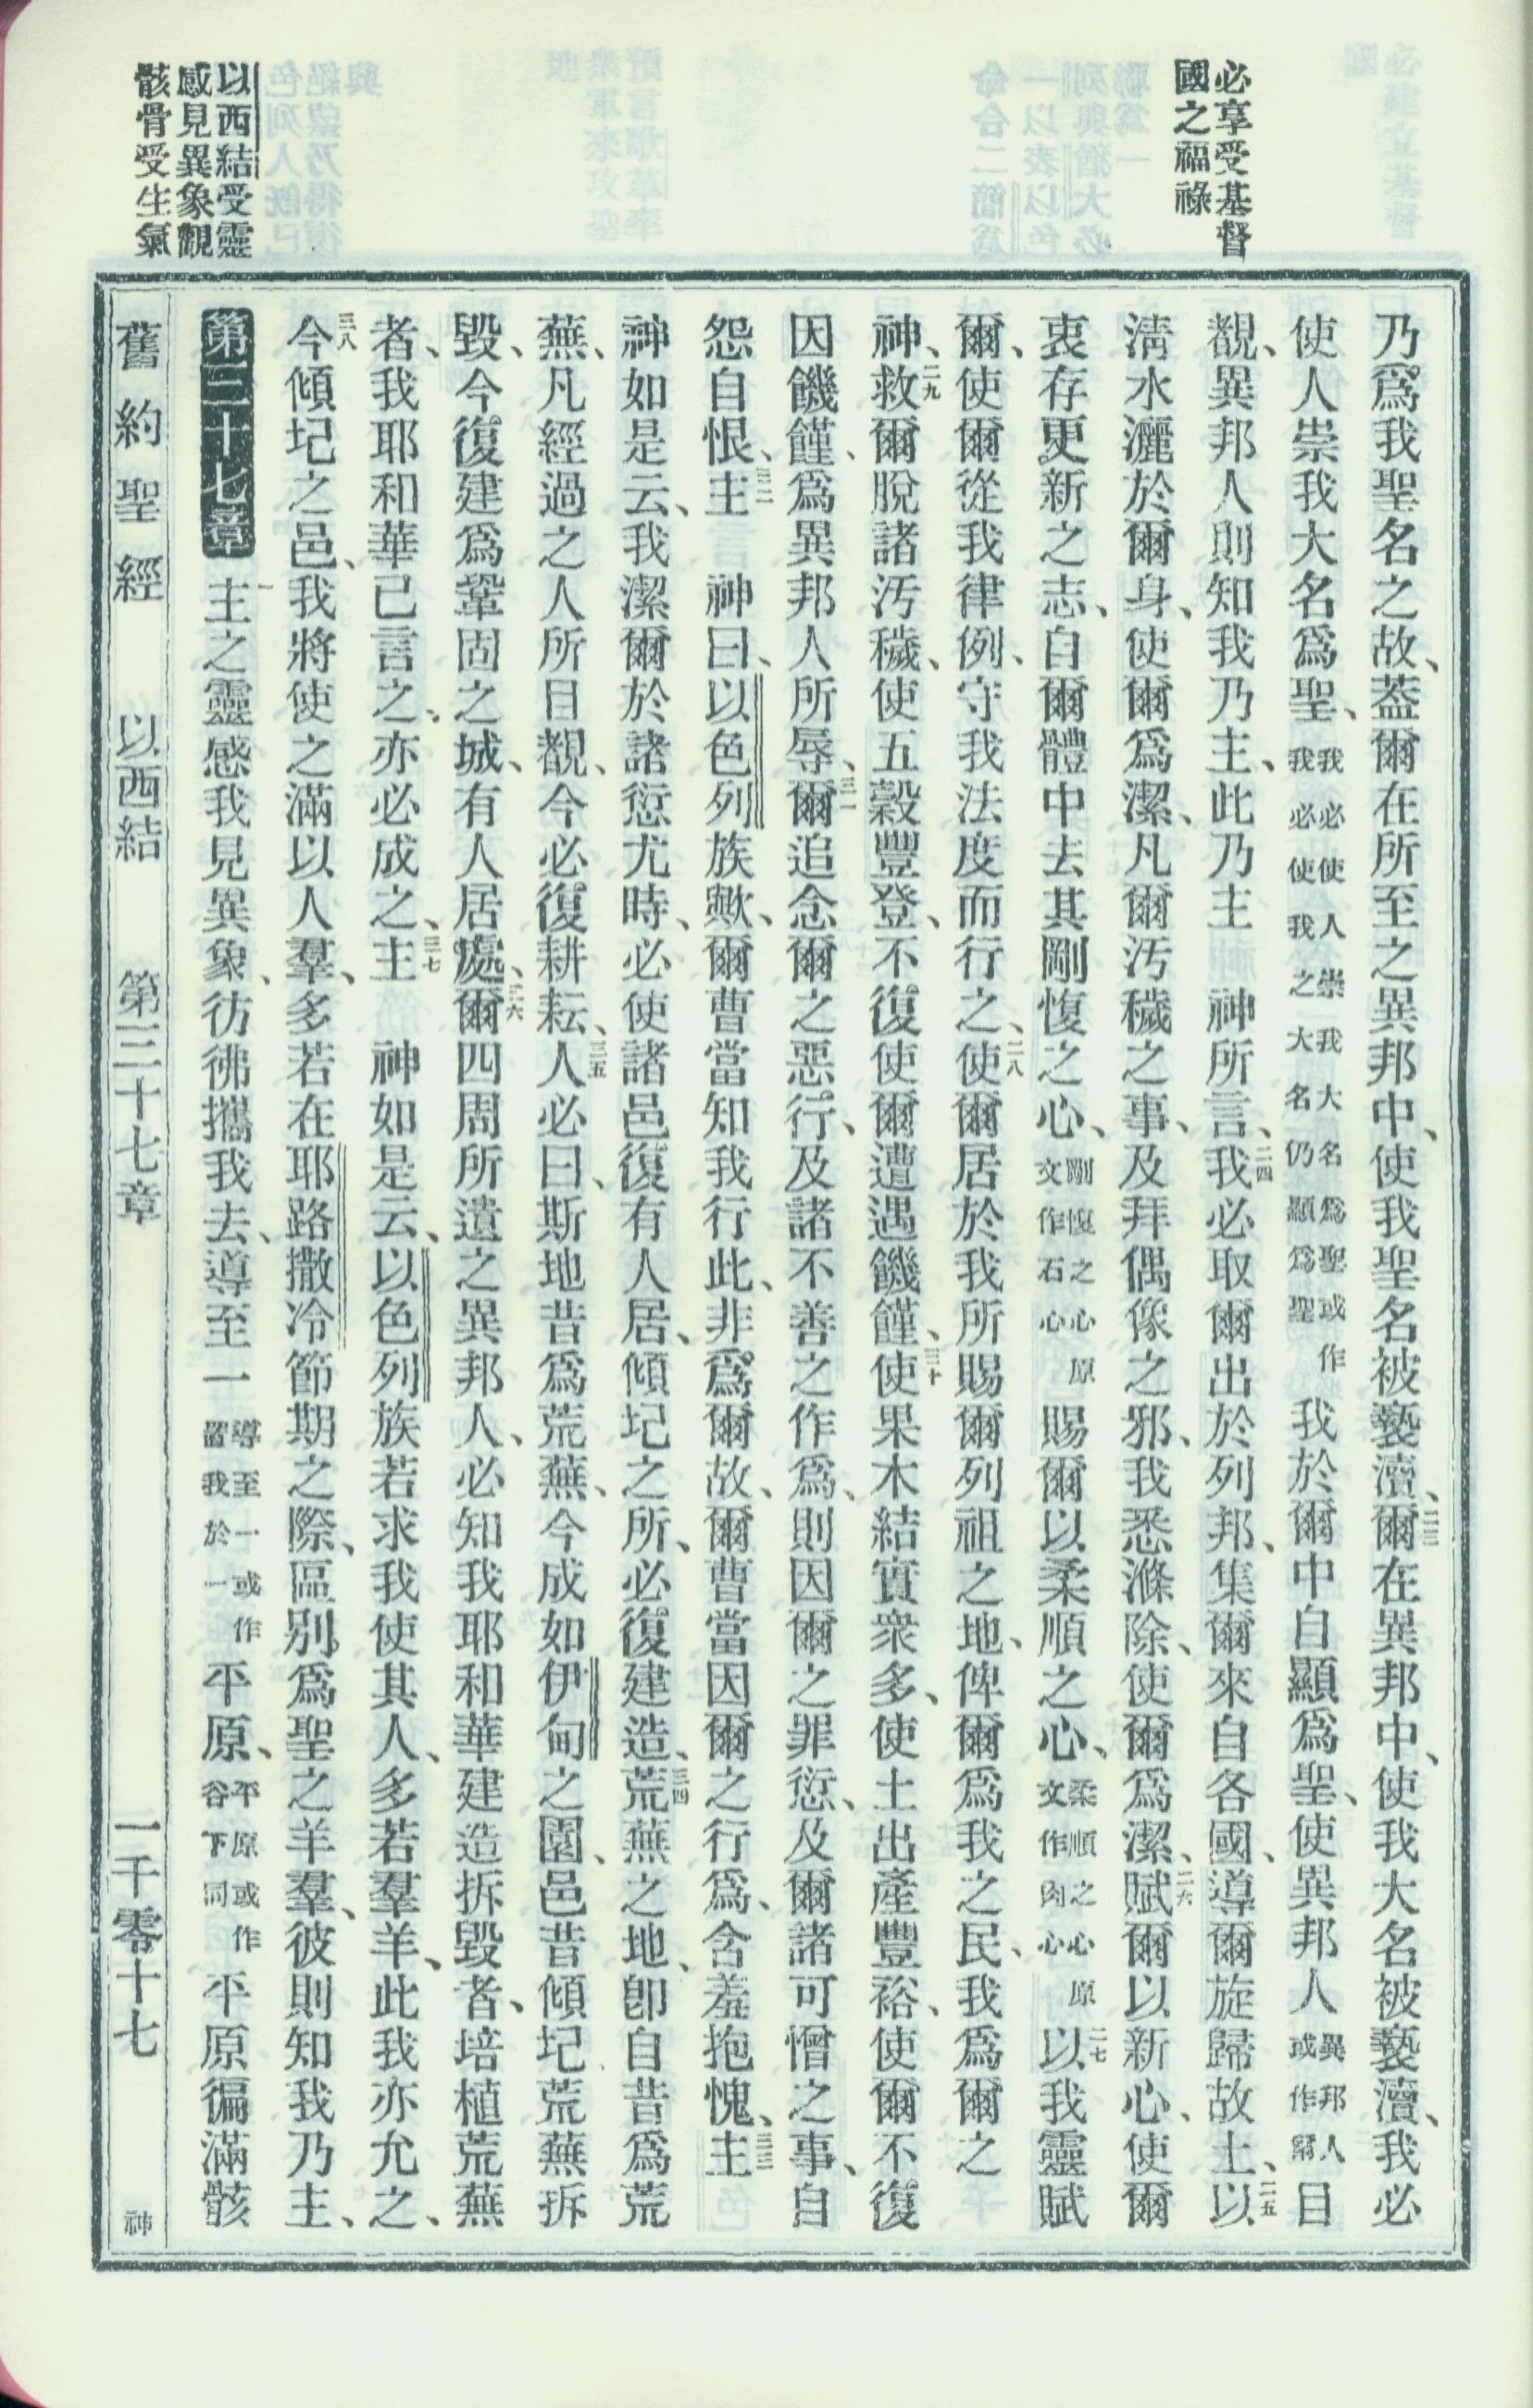 必享受基督
國之福祿
以西結受靈
感見異象觀
骸骨受生氣
乃爲我聖名之故、蓋爾在所至之異邦中、使我聖名被褻瀆、二三爾在異邦中、使我大名被褻瀆、我必
使人崇我大名爲聖、我必使人崇我大名爲聖或作我必使我之大名仍顯爲聖我於爾中自顯爲聖、使異邦人異邦人或作爾目
覩、異邦人則知我乃主、此乃主　神所言、二四我必取爾出於列邦、集爾來自各國、導爾旋歸故土、二五以
淸水灑於爾身、使爾爲潔、凡爾汚穢之事、及拜偶像之邪、我悉滌除、使爾爲潔、二六賦爾以新心、使爾
衷存更新之志、自爾體中去其剛愎之心、剛愎之心原文作石心賜爾以柔順之心、柔順之心原文作肉心二七以我靈賦
爾、使爾從我律例、守我法度而行之、二八使爾居於我所賜爾列祖之地、俾爾爲我之民、我爲爾之
神、二九救爾脫諸汚穢、使五穀豐登、不復使爾遭遇饑饉、三十使果木結實衆多、使土出產豐裕、使爾不復
因饑饉、爲異邦人所辱、三一爾追念爾之惡行、及諸不善之作爲、則因爾之罪愆、及爾諸可憎之事、自
怨自恨、三二主　神曰、以色列族歟、爾曹當知我行此、非爲爾故、爾曹當因爾之行爲、含羞抱愧、三三主
神如是云、我潔爾於諸愆尤時、必使諸邑復有人居、傾圮之所、必復建造、三四荒蕪之地、卽自昔爲荒
蕪、凡經過之人所目覩、今必復耕耘、三五人必曰、斯地昔爲荒蕪、今成如伊甸之園、邑昔傾圮荒蕪拆
毀、今復建爲鞏固之城、有人居處、三六爾四周所遺之異邦人、必知我耶和華建造拆毀者、培植荒蕪
者、我耶和華已言之、亦必成之、三七主　神如是云、以色列族若求我使其人、多若羣羊、此我亦允之、
三八今傾圮之邑、我將使之滿以人羣、多若在耶路撒冷節期之際、區別爲聖之羊羣、彼則知我乃主、
第三十七章　一主之靈感我見異象、彷彿攜我去、導至一導至一或作置我於一平原、平原或作谷下同平原徧滿骸
舊約聖經　以西結　第三十七章　一千零十七　神